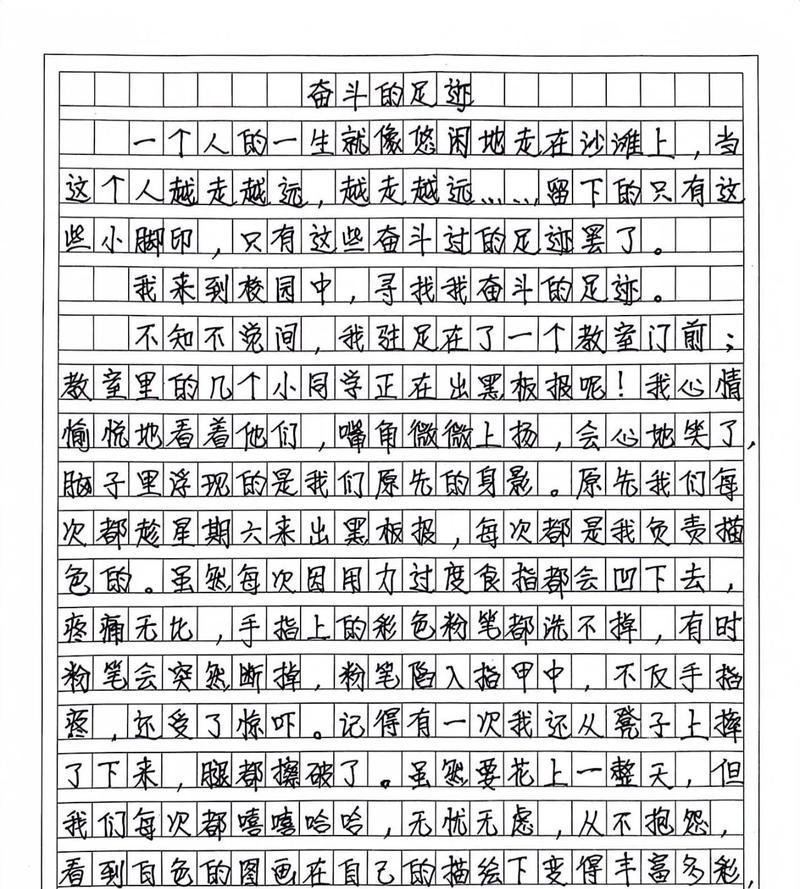 奋斗的足迹
一个人的一生就像悠闲地走在沙滩上，当
这个人越走越远，越走越远……留下的只有这
些小脚印，只有这些奋斗过的足迹罢了。
我来到校园中，寻找我奋斗的足迹。
不知不觉间，我驻足在了一个教室门前；
教室里的几个小同学正在出黑板报呢！我心情
愉悦地看着他们，嘴角微微上扬，会心地笑了，
脑子里浮现的是我们原先的身影。原先我们每
次都趁星期六来出黑板报，每次都是我负责描
色的。虽然每次因用力过度食指都会凹下去，
疼痛无比，手指上的彩色粉笔都洗不掉，有时
粉笔会突然断掉，粉笔陷入指甲中，不仅手指
疼，还受了惊吓。记得有一次我还从凳子上摔
了下来，腿都擦破了。虽然要花上一整天，但
我们每次都嘻嘻哈哈，无忧无虑，从不抱怨，
看到白色的图画在自己的描绘下变得丰富多彩，